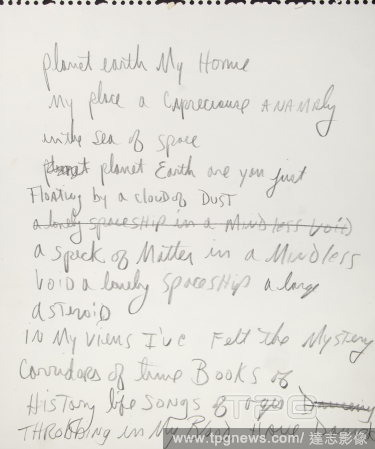 planet earth My Home
My place a Capreciouse ANAMaly
in the Sea of Space
planet planet Earth are you just
Floating by a cloud of DUST
a lonely spaceship in a Mindless void
a speck of Matter in a Mindless
void a lonely spaceship a large
asteroid
in My viens I've Felt the Mystery
Corridors of time Books of
History life songs of ages Dancing
THROBBING in My Blood Have Danced
www.tpgnews.com/達志影像